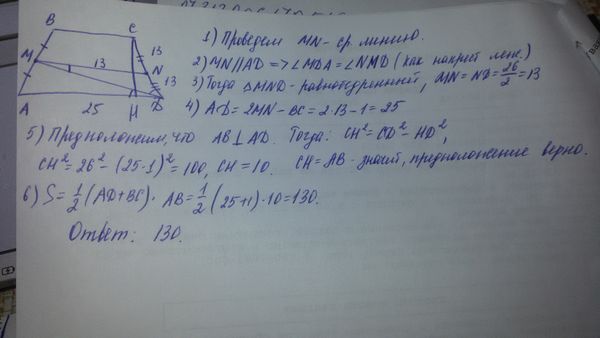 B
C
1) Проведем MN - ср. линию.
13
M
13
N
2) MN∥AD => ∠MDA = ∠NMD (как накрест леж.)
13
3) Тогда △MND - равнобедренный, MN = ND = 26/2 = 13
A
25
H
D
4) AD = 2MN - BC = 2·13 - 1 = 25
5) Предположим, что AB ⊥ AD. Тогда: CH² = CD² - HD²,
CH² = 26² - (25-1)² = 100, CH = 10. CH = AB - значит, предположение верно.
6) S = 1/2 (AD+BC) · AB = 1/2 (25+1)·10 = 130.
Ответ: 130.